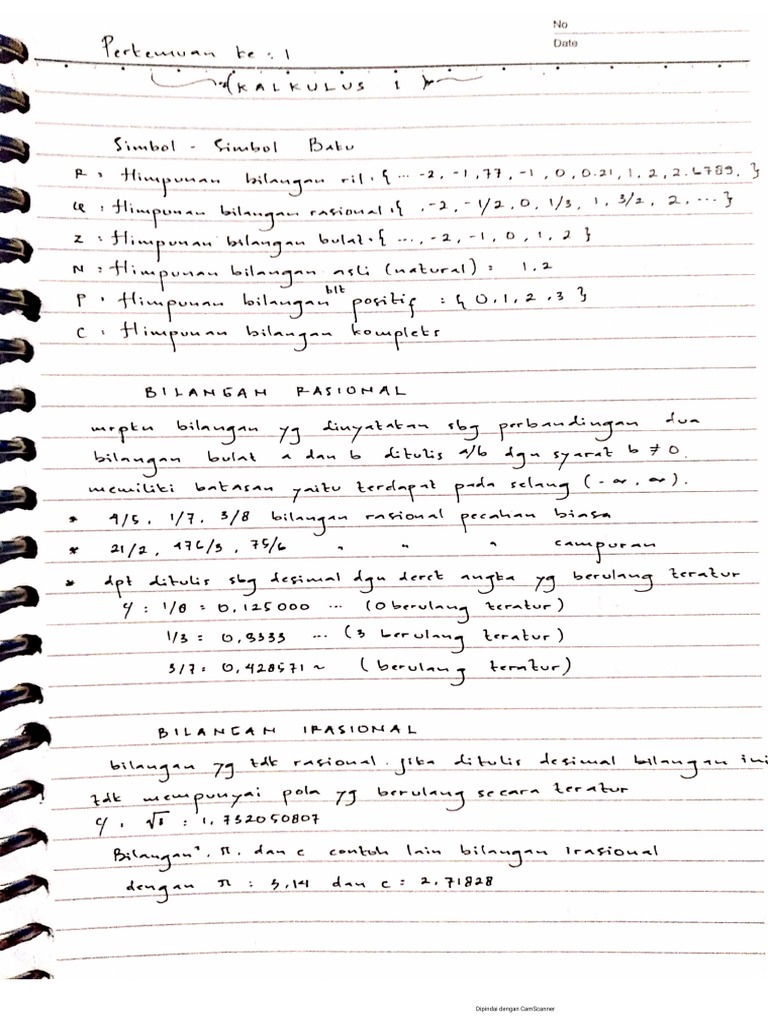 No
Date
Pertemuan ke : 1
KALKULUS 1
Simbol - Simbol Baku
R : Himpunan bilangan ril : { ... -2, -1,77, -1, 0, 0.21, 1, 2, 2.6789, }
Q : Himpunan bilangan rasional : { , -2, -1/2, 0, 1/3, 1, 3/2, 2, ... }
Z : Himpunan bilangan bulat : { ..., -2, -1, 0, 1, 2 }
N : Himpunan bilangan asli (natural) : 1,2
P : Himpunan bilangan blt positif : { 0, 1, 2, 3 }
C : Himpunan bilangan kompleks
BILANGAN RASIONAL
mrpkn bilangan yg dinyatakan sbg perbandingan dua
bilangan bulat a dan b ditulis a/b dgn syarat b ≠ 0.
memiliki batasan yaitu terdapat pada selang (-∞, ∞).
* 4/5, 1/7, 3/8 bilangan rasional pecahan biasa
* 21/2, 476/3, 75/6 " " " campuran
* dpt ditulis sbg desimal dgn deret angka yg berulang teratur
cj : 1/8 = 0,125000 ... (0 berulang teratur)
1/3 = 0,3333 ... (3 berulang teratur)
3/7 = 0,428571 ~ (berulang teratur)
BILANGAN IRASIONAL
bilangan yg tdk rasional. Jika ditulis desimal bilangan ini
tdk mempunyai pola yg berulang secara teratur
cj : √3 : 1,732050807
Bilangan², π, dan e contoh lain bilangan irasional
dengan π : 3,14 dan e : 2,71828
Dipindai dengan CamScanner